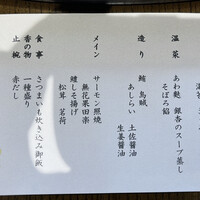 温菜
あわ麩 銀杏のスープ蒸し
そぼろ餡
造り
鮪 烏賊
あしらい 土佐醤油
生姜醤油
メイン
サーモン照焼
無花果田楽
鱧しそ揚げ
松茸 茗荷
食事
さつまいも炊き込み御飯
香の物
一種盛り
止椀
赤だし